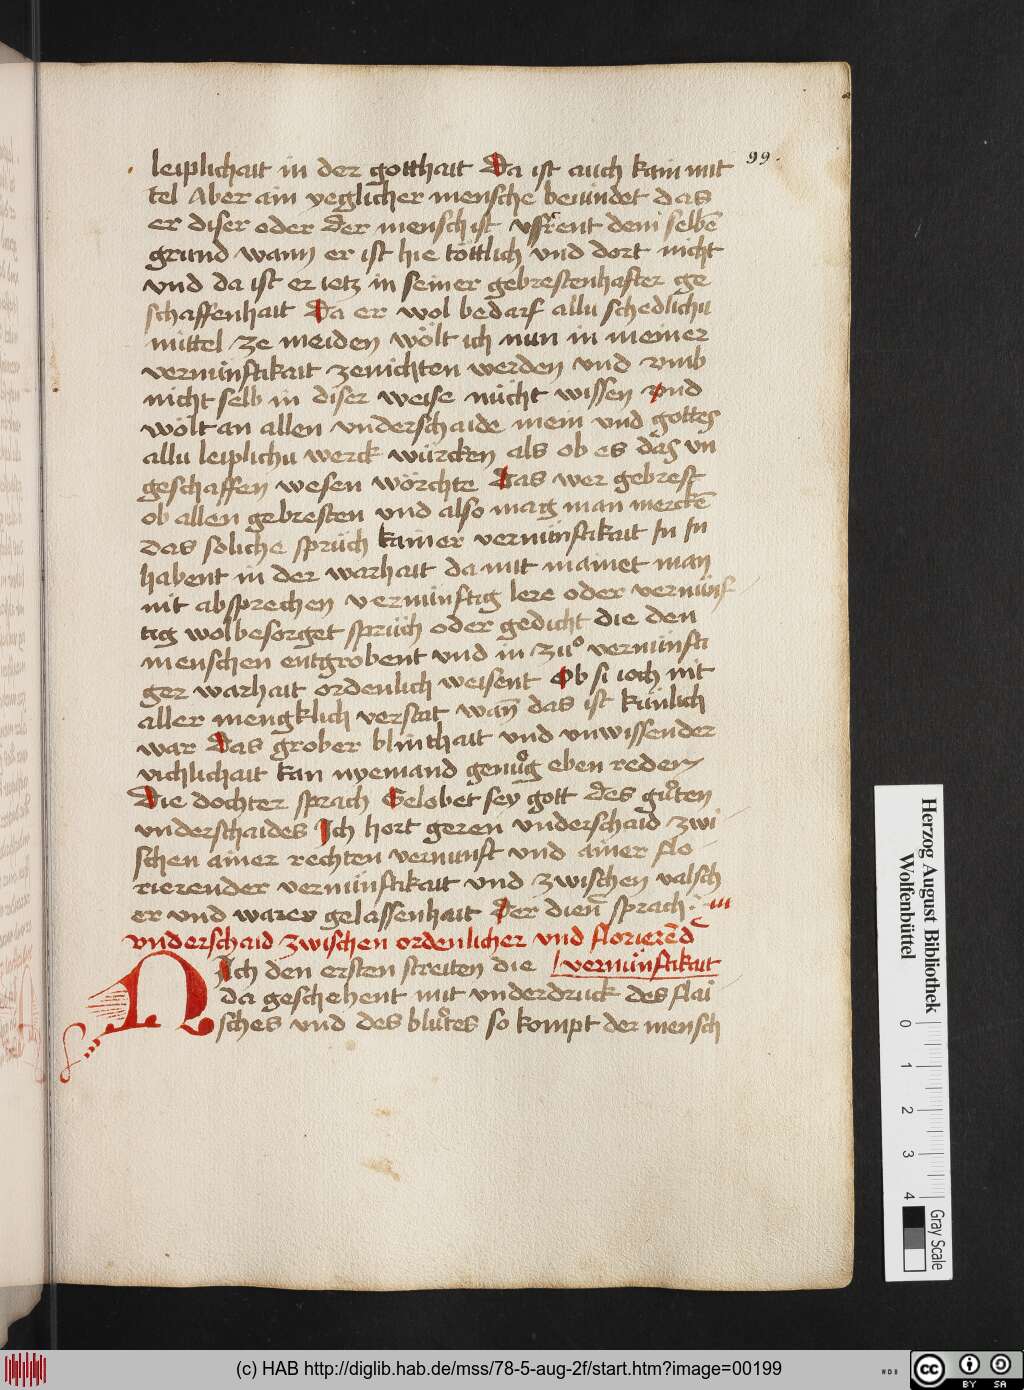 99.
leiplichait in der gotthait Da ist auch kain mit
tel Aber ain yeglicher mensche beuindet das
er diser oder der mensch ist vsſrent dem selbē
grund wann er ist hie töttlich vnd dort nicht
vnd da ist er ietz in seiner gebrestenhafter ge
schaffenhait Da er wol bedarf allu schedlichu
mittel ze meiden wölt ich nun in meiner
vernünftikait zenichten werden vnd vmb
nicht selb in diser weise nücht wissen vnd
wölt an allen vnderschaide mein vnd gottes
allu leiplichu werck würcken als ob es das vn
geschaffen wesen wörchte das wer gebrest
ob allen gebresten vnd also mag man merckē
das soliche sprüch kainer vernünftikait In In
habent in der warhait da mit mainet man
nit absprechen vernünftig lere oder vernünf
tig wolbesorget sprüch oder gedicht die den
menschen entgrobent vnd in zuͦ vernünfti
ger warhait ordenlich weisent Ob si ioch nit
aller mengklich verstat wañ das ist künlich
war Das grober blinthait vnd vnwissender
vichlichait kan nyemand genuͦg eben reden
Die dochter sprach Gelobet sey gott des guͦten
vnderschaides Ich hort geren vnderschaid zwi
schen ainer rechten vernunft vnd ainer flo
rierender vernünftikait vnd zwischen valsch
er vnd warer gelassenhait Der dienr̄ sprach
vnderschaid zwischen ordenlicher vnd florierēd
Nich den ersten streiten die vernünftikait
da geschehent mit vnderdruck des flai
sches vnd des bluͦtes so kompt der mensch
Herzog August Bibliothek
Wolfenbüttel
0 1 2 3 4
Gray Scale
(c) HAB http://diglib.hab.de/mss/78-5-aug-2f/start.htm?image=00199
HAB
cc BY SA